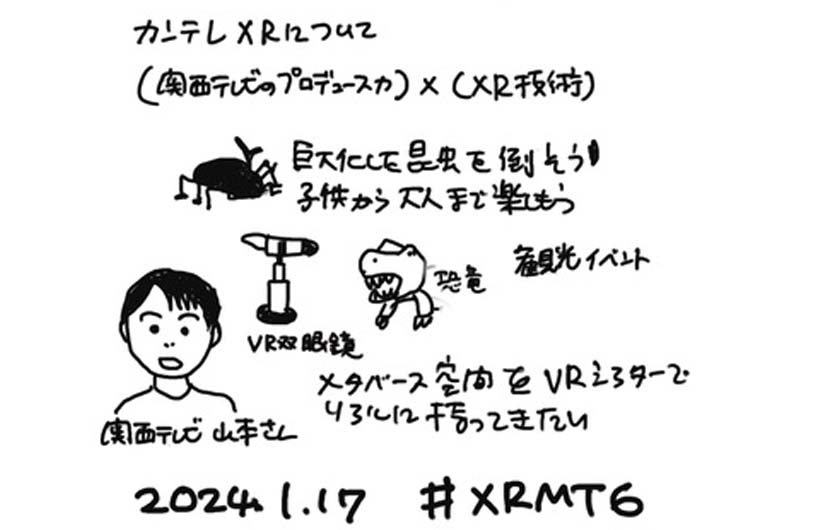 カンテレXRについて
(関西テレビのプロデュースカ)×(XR技術)
巨大化した昆虫を倒そう!
子供から大人まで楽しもう
恐竜
観光イベント
VR双眼鏡
メタバース空間をVRミラターで
リアルに持ってきたい
関西テレビ 山本さん
2024.1.17 #XRMT6